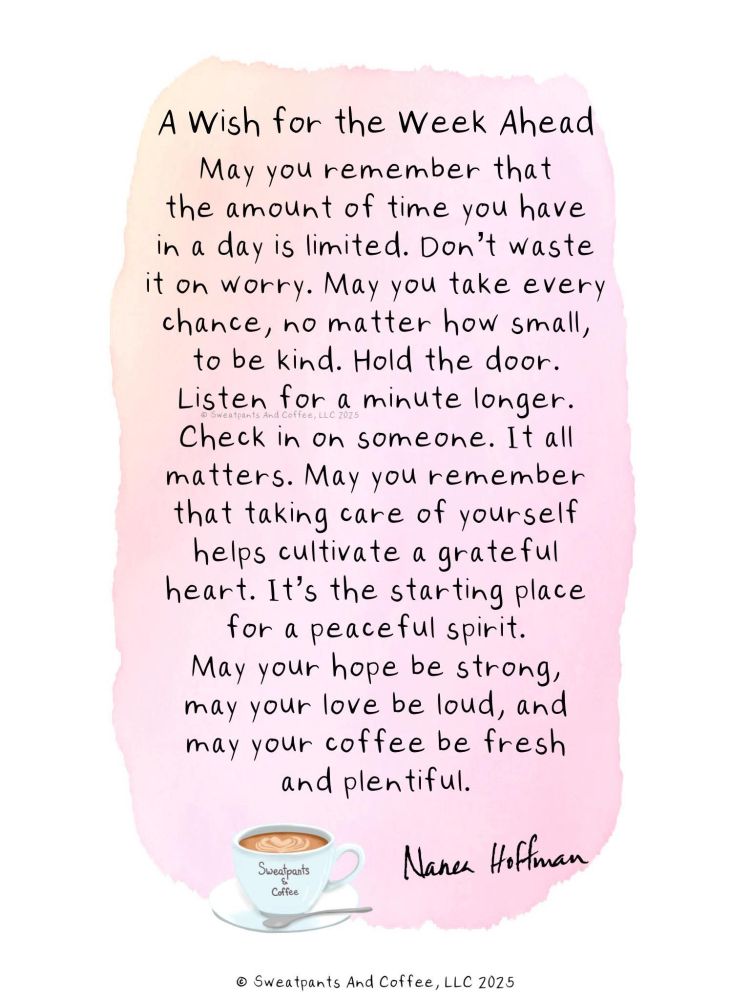 A Wish for the Week Ahead
May you remember that
the amount of time you have
in a day is limited. Don't waste
it on worry. May you take every
chance, no matter how small,
to be kind. Hold the door.
Listen for a minute longer.
© Sweatpants And Coffee, LLC 2025
Check in on someone. It all
matters. May you remember
that taking care of yourself
helps cultivate a grateful
heart. It's the starting place
for a peaceful spirit.
May your hope be strong,
may your love be loud, and
may your coffee be fresh
and plentiful.
Sweatpants
&
Coffee
Nanea Hoffman
© Sweatpants And Coffee, LLC 2025